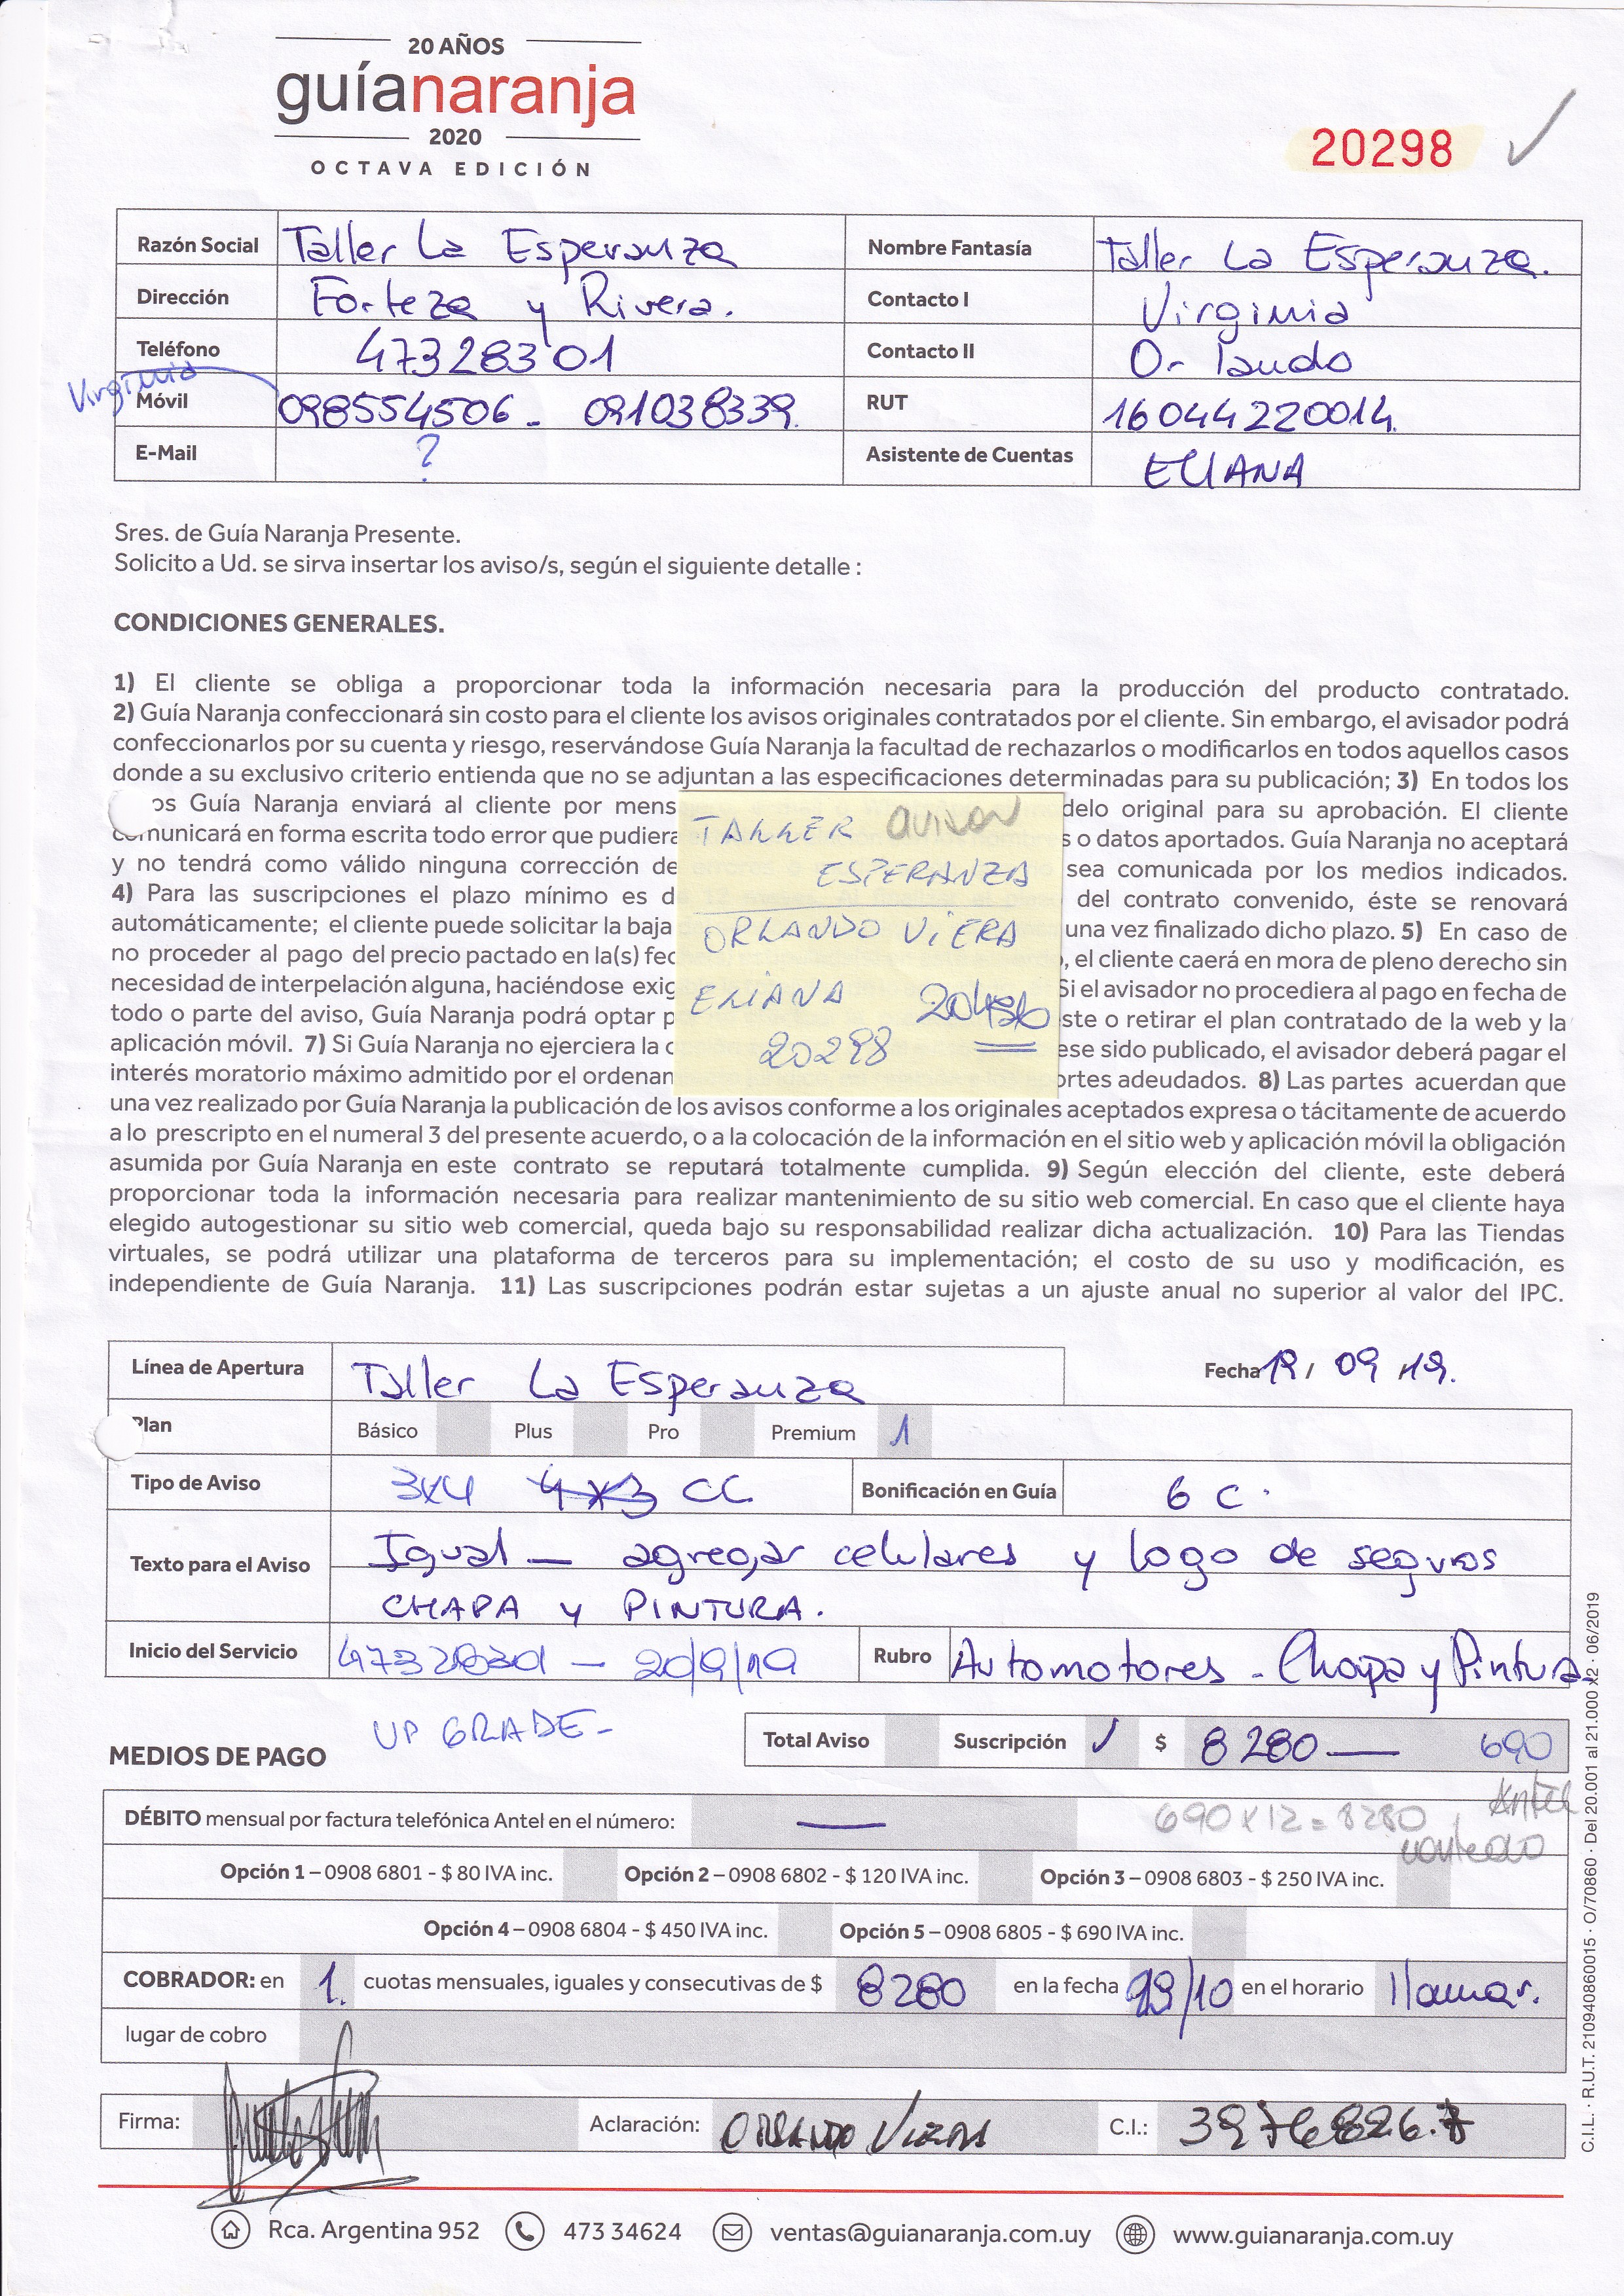 20 AÑOS
guíanaranja
2020
OCTAVA EDICIÓN
20298
Razón Social Taller La Esperanza Nombre Fantasía Taller La Esperanza.
Dirección Forteza y Rivera. Contacto I Virginia
Teléfono 47328301 Contacto II Orlando
Virginia
Móvil 098554506 - 091038339. RUT 160442220014.
E-Mail ? Asistente de Cuentas ELIANA
Sres. de Guía Naranja Presente.
Solicito a Ud. se sirva insertar los aviso/s, según el siguiente detalle :
CONDICIONES GENERALES.
1) El cliente se obliga a proporcionar toda la información necesaria para la producción del producto contratado.
2) Guía Naranja confeccionará sin costo para el cliente los avisos originales contratados por el cliente. Sin embargo, el avisador podrá
confeccionarlos por su cuenta y riesgo, reservándose Guía Naranja la facultad de rechazarlos o modificarlos en todos aquellos casos
donde a su exclusivo criterio entienda que no se adjuntan a las especificaciones determinadas para su publicación; 3) En todos los
os Guía Naranja enviará al cliente por mens delo original para su aprobación. El cliente
comunicará en forma escrita todo error que pudiera s o datos aportados. Guía Naranja no aceptará
y no tendrá como válido ninguna corrección de sea comunicada por los medios indicados.
4) Para las suscripciones el plazo mínimo es d del contrato convenido, éste se renovará
automáticamente; el cliente puede solicitar la baja una vez finalizado dicho plazo. 5) En caso de
no proceder al pago del precio pactado en la(s) fec , el cliente caerá en mora de pleno derecho sin
necesidad de interpelación alguna, haciéndose exig Si el avisador no procediera al pago en fecha de
todo o parte del aviso, Guía Naranja podrá optar p ste o retirar el plan contratado de la web y la
aplicación móvil. 7) Si Guía Naranja no ejerciera la c ese sido publicado, el avisador deberá pagar el
interés moratorio máximo admitido por el ordenan ortes adeudados. 8) Las partes acuerdan que
una vez realizado por Guía Naranja la publicación de los avisos conforme a los originales aceptados expresa o tácitamente de acuerdo
a lo prescripto en el numeral 3 del presente acuerdo, o a la colocación de la información en el sitio web y aplicación móvil la obligación
asumida por Guía Naranja en este contrato se reputará totalmente cumplida. 9) Según elección del cliente, este deberá
proporcionar toda la información necesaria para realizar mantenimiento de su sitio web comercial. En caso que el cliente haya
elegido autogestionar su sitio web comercial, queda bajo su responsabilidad realizar dicha actualización. 10) Para las Tiendas
virtuales, se podrá utilizar una plataforma de terceros para su implementación; el costo de su uso y modificación, es
independiente de Guía Naranja. 11) Las suscripciones podrán estar sujetas a un ajuste anual no superior al valor del IPC.
TALLER
ESPERANZA
ORLANDO VIERA
ELIANA 20456
20298
Línea de Apertura Taller La Esperanza Fecha 19/ 09 /19.
Plan Básico Plus Pro Premium 1
Tipo de Aviso 3x4 4x3 CC Bonificación en Guía 6 C.
Texto para el Aviso Igual - agregar celulares y logo de seguros
CHAPA y PINTURA.
Inicio del Servicio 47328301 - 20/9/19 Rubro Automotores - Chapa y Pintura.
UP GRADE-
MEDIOS DE PAGO
Total Aviso Suscripción $ 8280 690
DÉBITO mensual por factura telefónica Antel en el número: 690 x 12 = 8280 Antel
contado
Opción 1 – 0908 6801 - $ 80 IVA inc. Opción 2 – 0908 6802 - $ 120 IVA inc. Opción 3 – 0908 6803 - $ 250 IVA inc.
Opción 4 – 0908 6804 - $ 450 IVA inc. Opción 5 – 0908 6805 - $ 690 IVA inc.
COBRADOR: en 1. cuotas mensuales, iguales y consecutivas de $ 8280 en la fecha /10 en el horario llamar.
lugar de cobro
Firma: Aclaración: ORLANDO VIERA C.I.: 3976826.7
Rca. Argentina 952 473 34624 ventas@guianaranja.com.uy www.guianaranja.com.uy
C.I.L. · R.U.T. 210940860015 · O/70860 · Del 20.001 al 21.000 x2 · 06/2019